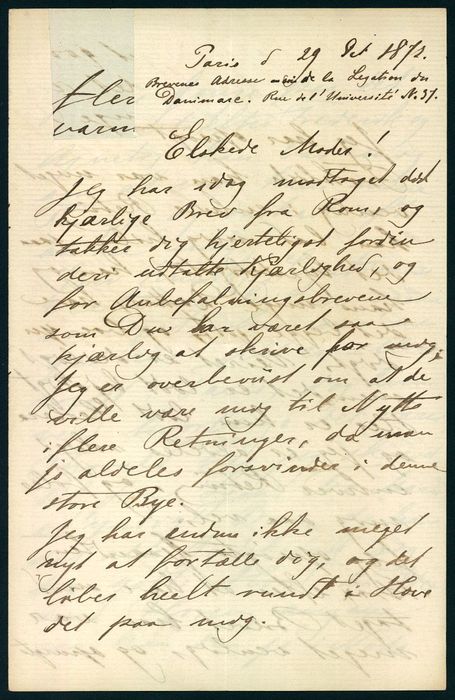 Paris d 29 Oct 1872.
Brevenes Adresse de la Legation du
Danimarc. Rue de l'Université No. 37.
fler
varm
Elskede Moder!
Jeg har idag modtaget dit
kjærlige Brev fra Rom, og
takker dig hjerteligst for den
deri udtalte Kjærlighed, og
for Anbefalningsbrevene
som Du har været saa
kjærlig at skrive for mig,
Jeg er overbeviist om at de
ville være mig til Nytte
i flere Retninger, da man
jo aldeles forsvinder i denne
store Bye.
Jeg har endnu ikke meget
nyt at fortælle dig, og det
løber heelt rundt i Hove
det paa mig.